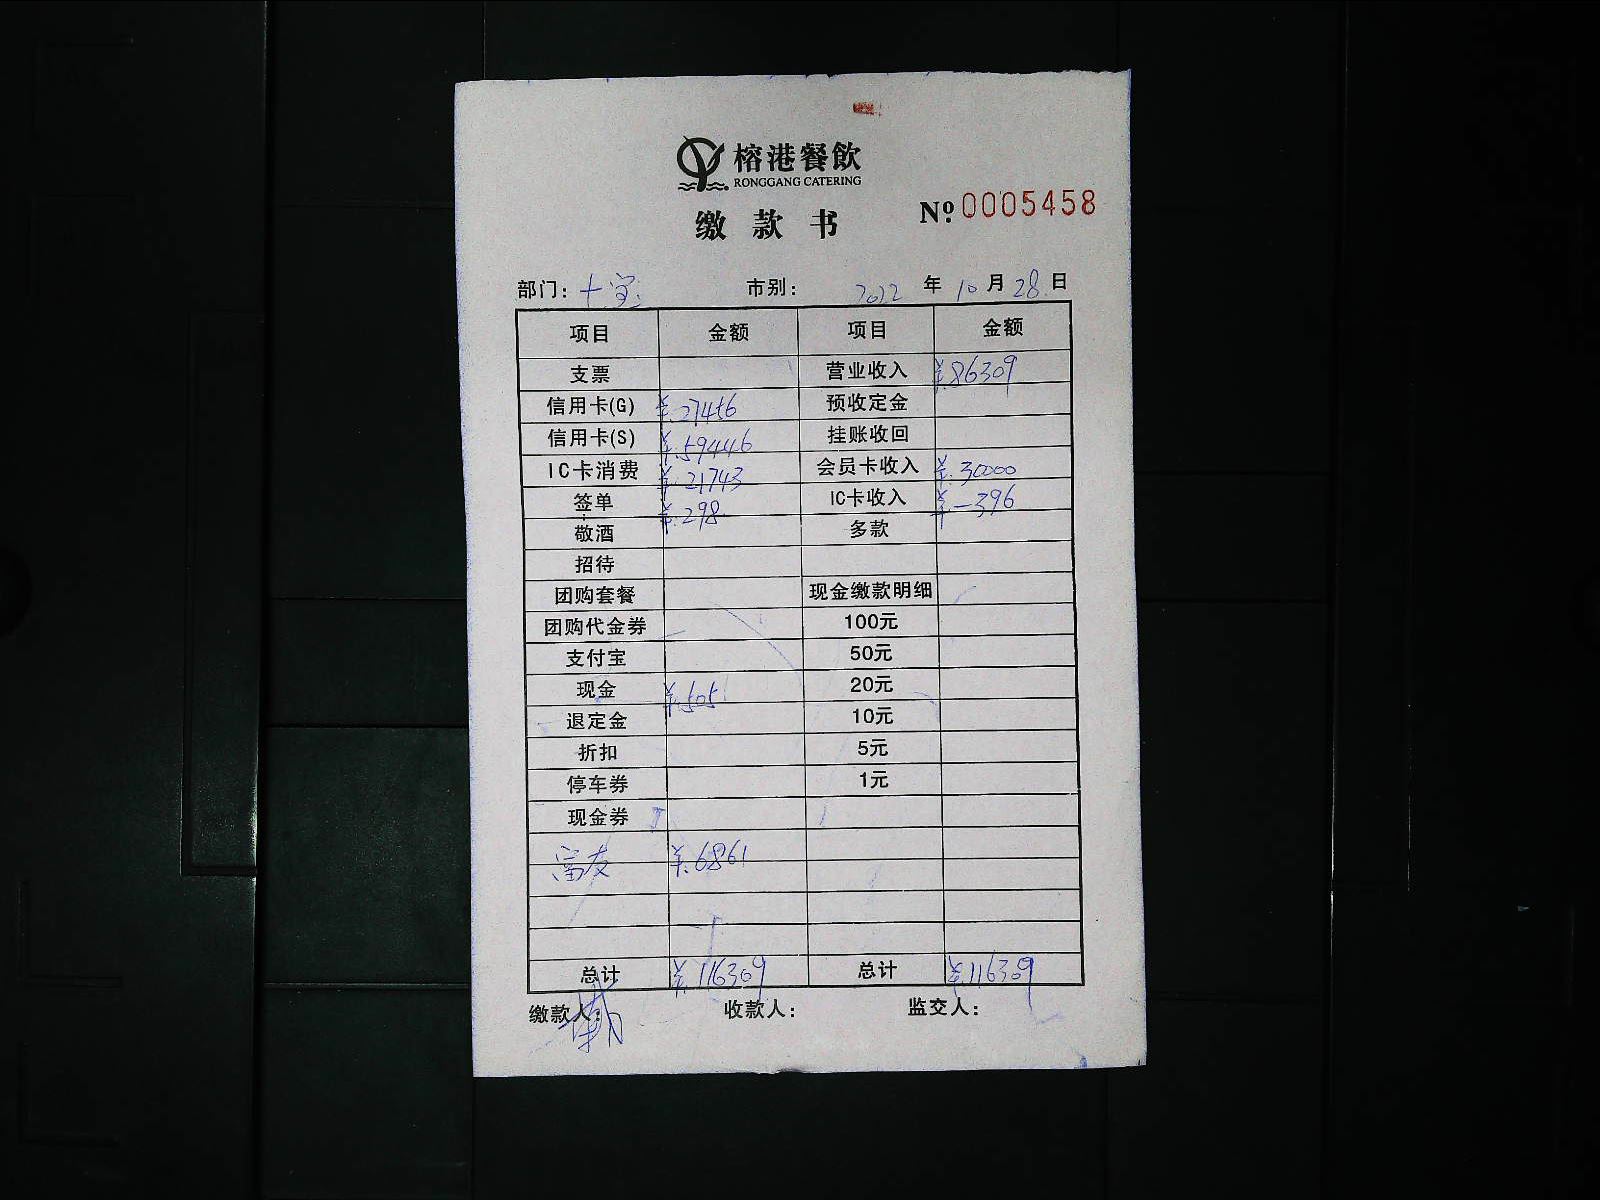 榕港餐飲
RONGGANG CATERING
缴款书 №0005458
部门: 十宝 市别: 2022 年 10 月 28 日
项目 金额 项目 金额
支票 营业收入 ¥.86309
信用卡(G) ¥.27456 预收定金
信用卡(S) ¥.59446 挂账收回
IC卡消费 ¥.21743 会员卡收入 ¥.30000
签单 ¥.298 IC卡收入 ¥-396
敬酒 多款
招待
团购套餐 现金缴款明细
团购代金券 100元
支付宝 50元
现金 ¥.505 20元
退定金 10元
折扣 5元
停车券 1元
现金券
富友 ¥.6861
总计 ¥.116309 总计 ¥.116309
缴款人: 收款人: 监交人: